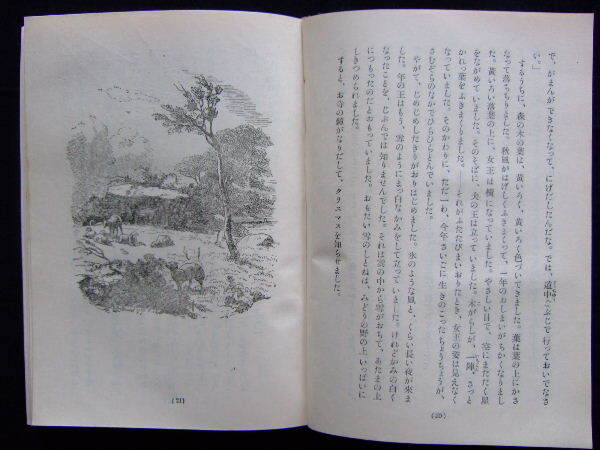 で、がまんができなくなって、にげだしたんだな。では、道中ぶじで行っておいでなさ
い。」
するうちに、森の木の葉は、黄いろく、黄いろく色づいてきました。葉は葉の上にかさ
なって落ちちりました。秋風がはげしくふきまくって、一年のおしまいがちかくなりまし
た。黄いろい落葉の上に、女王は横になっていました。やさしい目で、空にまたたく星
をながめていました。そのそばに、夫の王は立っていました。木がらしが、一陣、さっと
かれっ葉をふきまくりました。――それがふたたびまいおりたとき、女王の姿は見えなく
なっていました。そのかわりに、ただ一わ、今年さいごに生きのこったちょうちょうが、
さむぞらのなかでひらひらとんでいました。
やがて、じめじめしたきりがおりはじめました。氷のような風と、くらい長い夜が来ま
した。年の王はもう、雪のようにまっ白なかみをして立っていました。けれどかみの白く
なったことを、じぶんでは知りませんでした。それは雲の中から雪がおちて、あたまの上
につもったのだとおもっていました。おもたい雪のしとねは、みどりの野の上いっぱいに
しきつめられました。
すると、お寺の鐘がなりだして、クリスマスを知らせました。
(20)
(21)